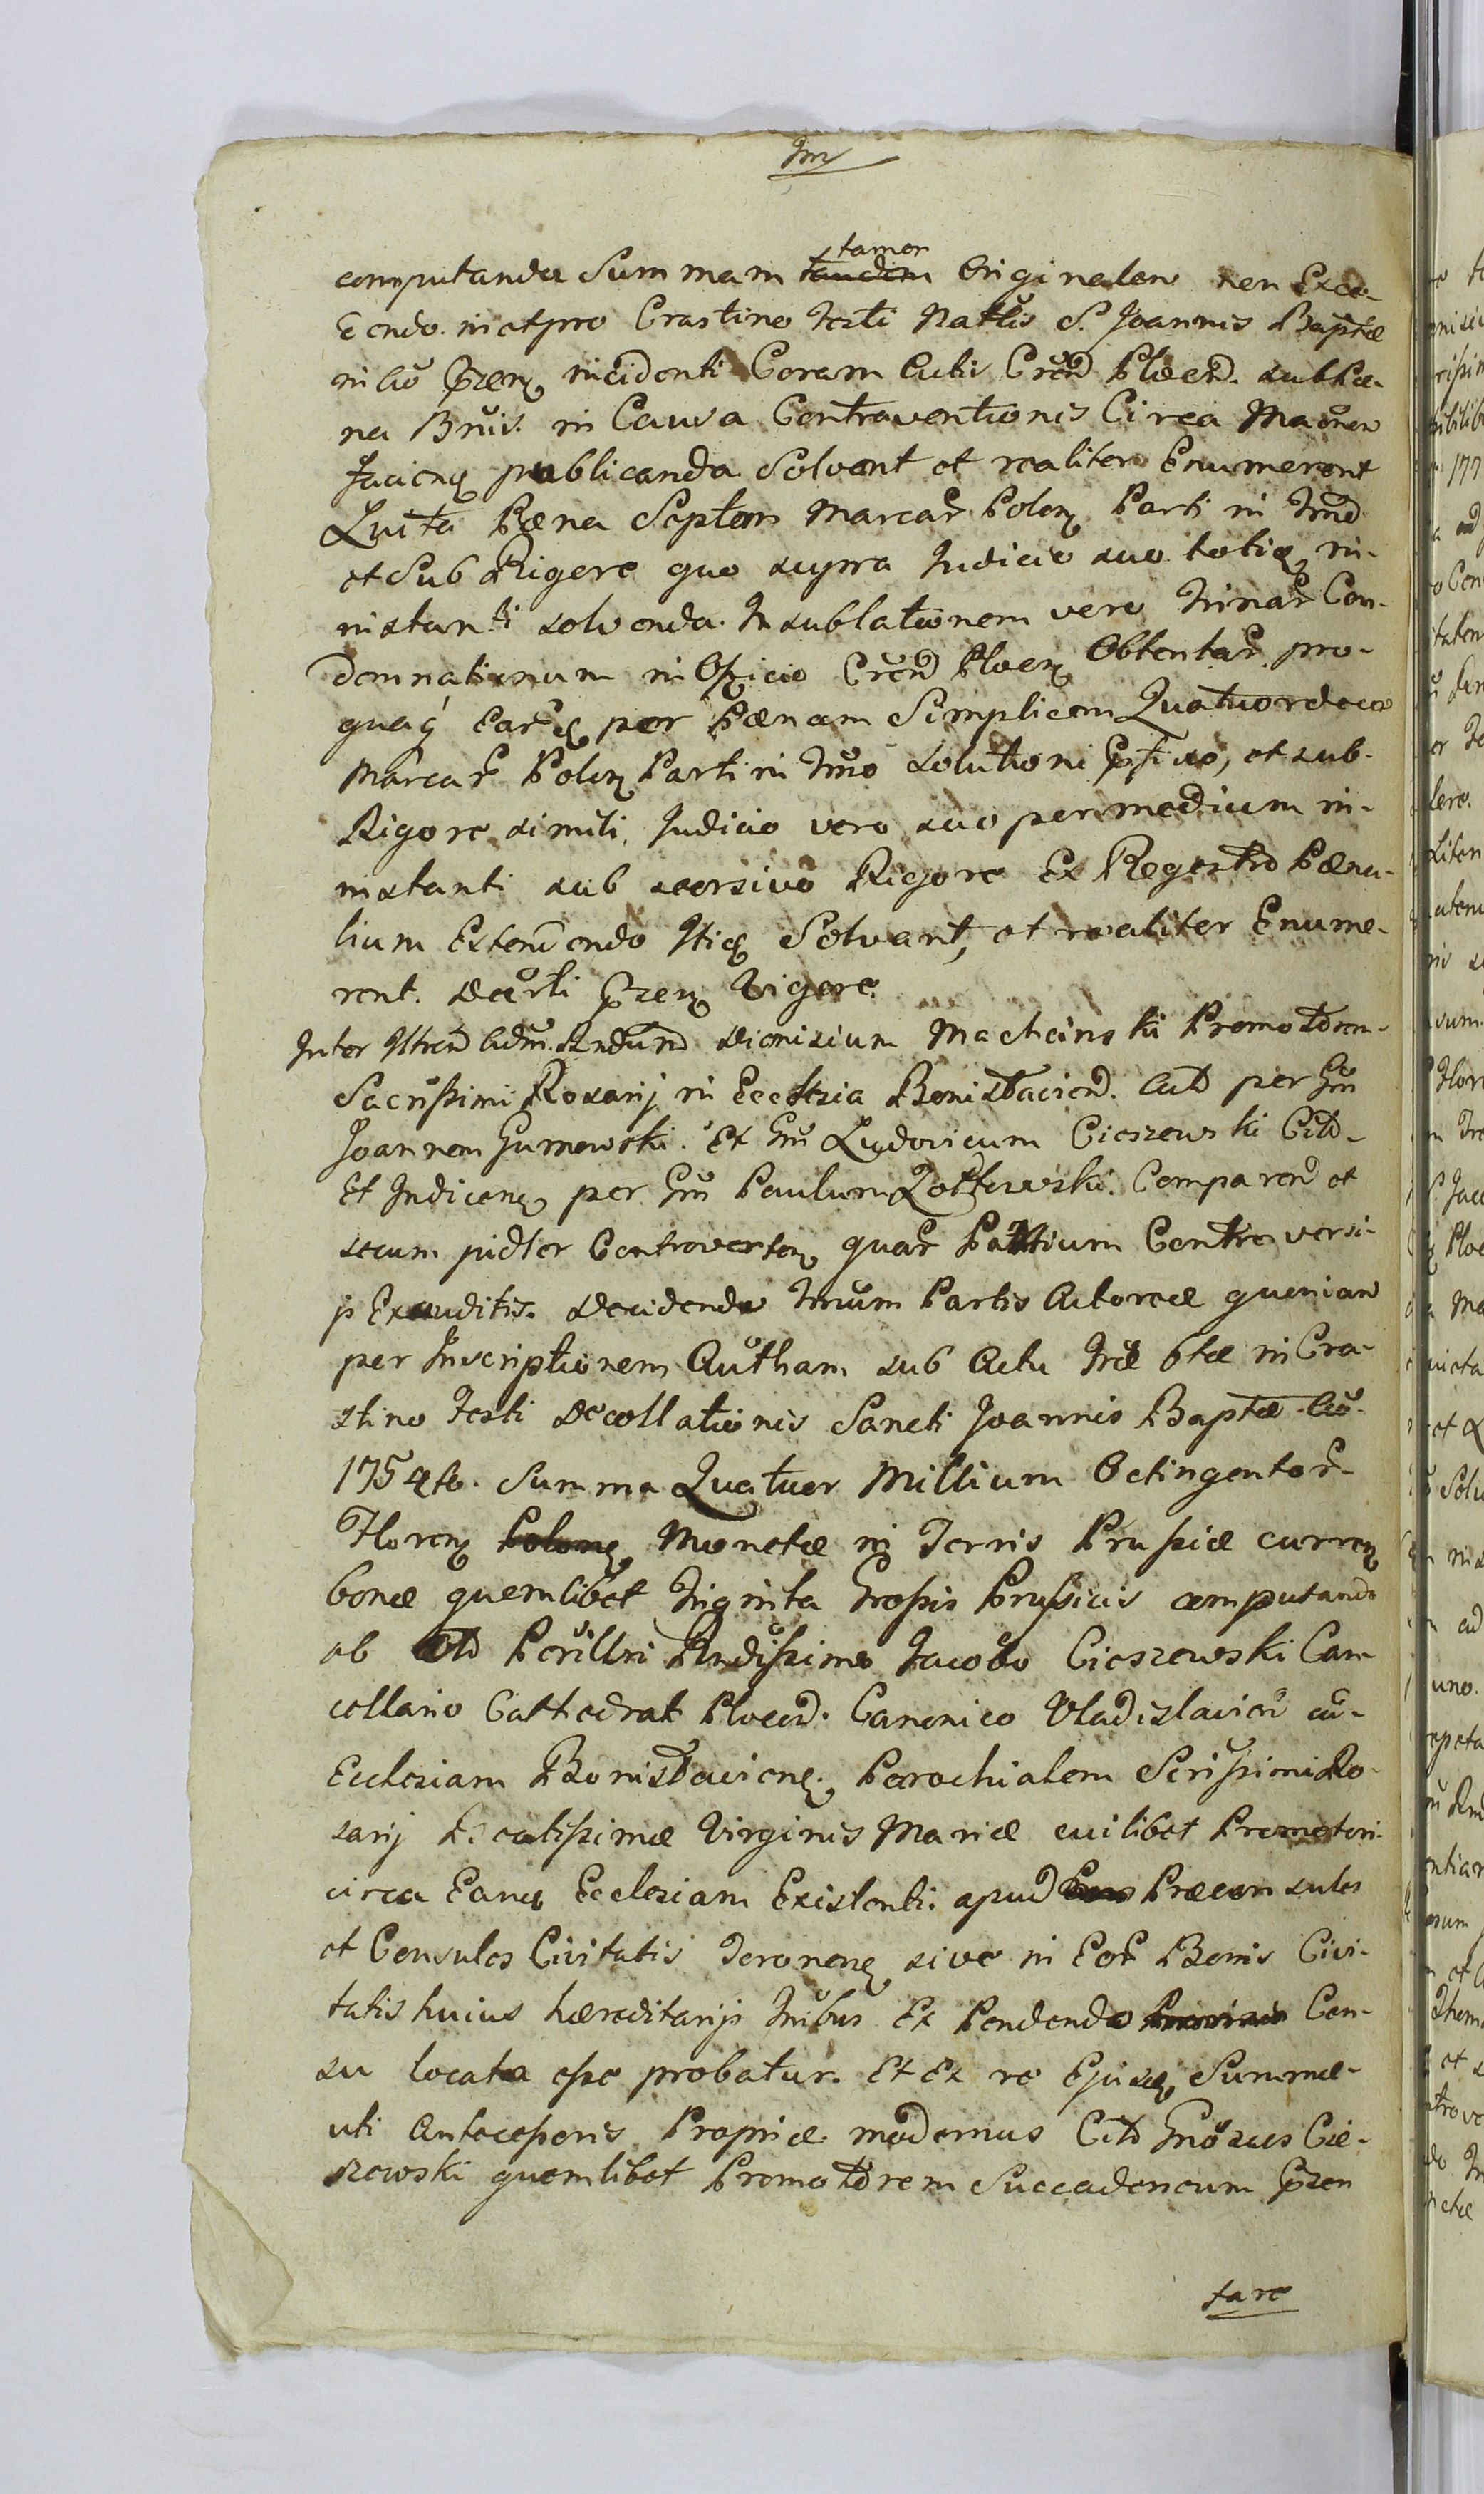 computanda Summam tandem tamen Originalem non Exce-
dendo. in et pro Crastino Festi Natlis S. Joannis Baptæ
in Ao Pzenz incidenti Coram Actis Crend Plœcen. sub Pæ-
na Bnis. in Causa Contraventionis Circa
Faciens publicanda Solvant et realiter Enumerent
Luita Pæna Septem Marcar Polon Parti in Trmo
et Sub Rigore quo supra Judicio suo totiq in-
instanti solvenda. In sublationem vero Trinar Con-
demnationum in Officio Crend Plocen Obtentar pro-
quaq Earq per Pænam Simplicem Quatuordecim
Marcar Polon Parti in Trmo solutioni, et sub-
Rigore simili, Judicio vero suo per medium in-
instanti sub seorsivo Rigore Ex Regestro Pæna-
lium Extendendo Itiq Solvant, et realiter Enume-
rent. Decrti Pzenz Vigore.
Inter Adm. Rndum Dionisium Machcinski Promotorem
Sacrissimi Rosarij in Ecclesia Bonislaviens. Act per Gm
Joannem Gurnowski. Et Gm Ludovicum Cieszewski Citd-
Et Judicenz per Gm Paulum Zottowski. Comparen et
secum pidter Controverten quar Partium Controversi-
js Exauditis. Decidendo Trmum Partis Actoreæ quoniam
per Inscriptionem Autham sub Actu Friæ 6tæ in Cra-
stino Festi Decollationis Sancti Joannis Baptæ Ao
1754to. Summa Quatuor Millium Octingentor-
Floren Polonz Monetæ in Terris Prussiæ curren
bonæ quemlibet Triginta Grossis Prussicis computando
ab Olo Perillri Rndissimo Jacobo Cieszewski Can
cellario Cathedrat Plocen. Canonico Vladislavien ad-
Ecclesiam Bonislaviens. Parochialem Scrissimi Ro-
sarij Beatissimæ Virginis Mariæ cuilibet Promotori-
circa Eanq Ecclesiam Existenti. apud Præconsules
et Consules Civitatis Toronenz sive in Eor Bonis Civi-
tatis huius hæreditarijs Tribus Ex Pendendo Provisio Cen-
su locata esse probatur. Et Ex re Ejusq Summæ-
uti Antecessoris Propriæ modernus Citd Gnosus Cie-
szewski quemlibet Promotorem Succadeneum Pzen
tare